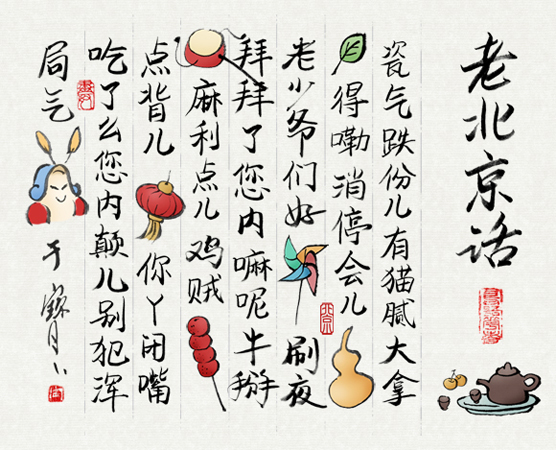 老北京话
瓷气跌份儿有猫腻大拿
得嘞消停会儿
北京
老少爷们好刷夜
拜拜了您内嘛呢牛掰
麻利点儿鸡贼
点背儿你丫闭嘴
吃了么您内颠儿别犯浑
局气